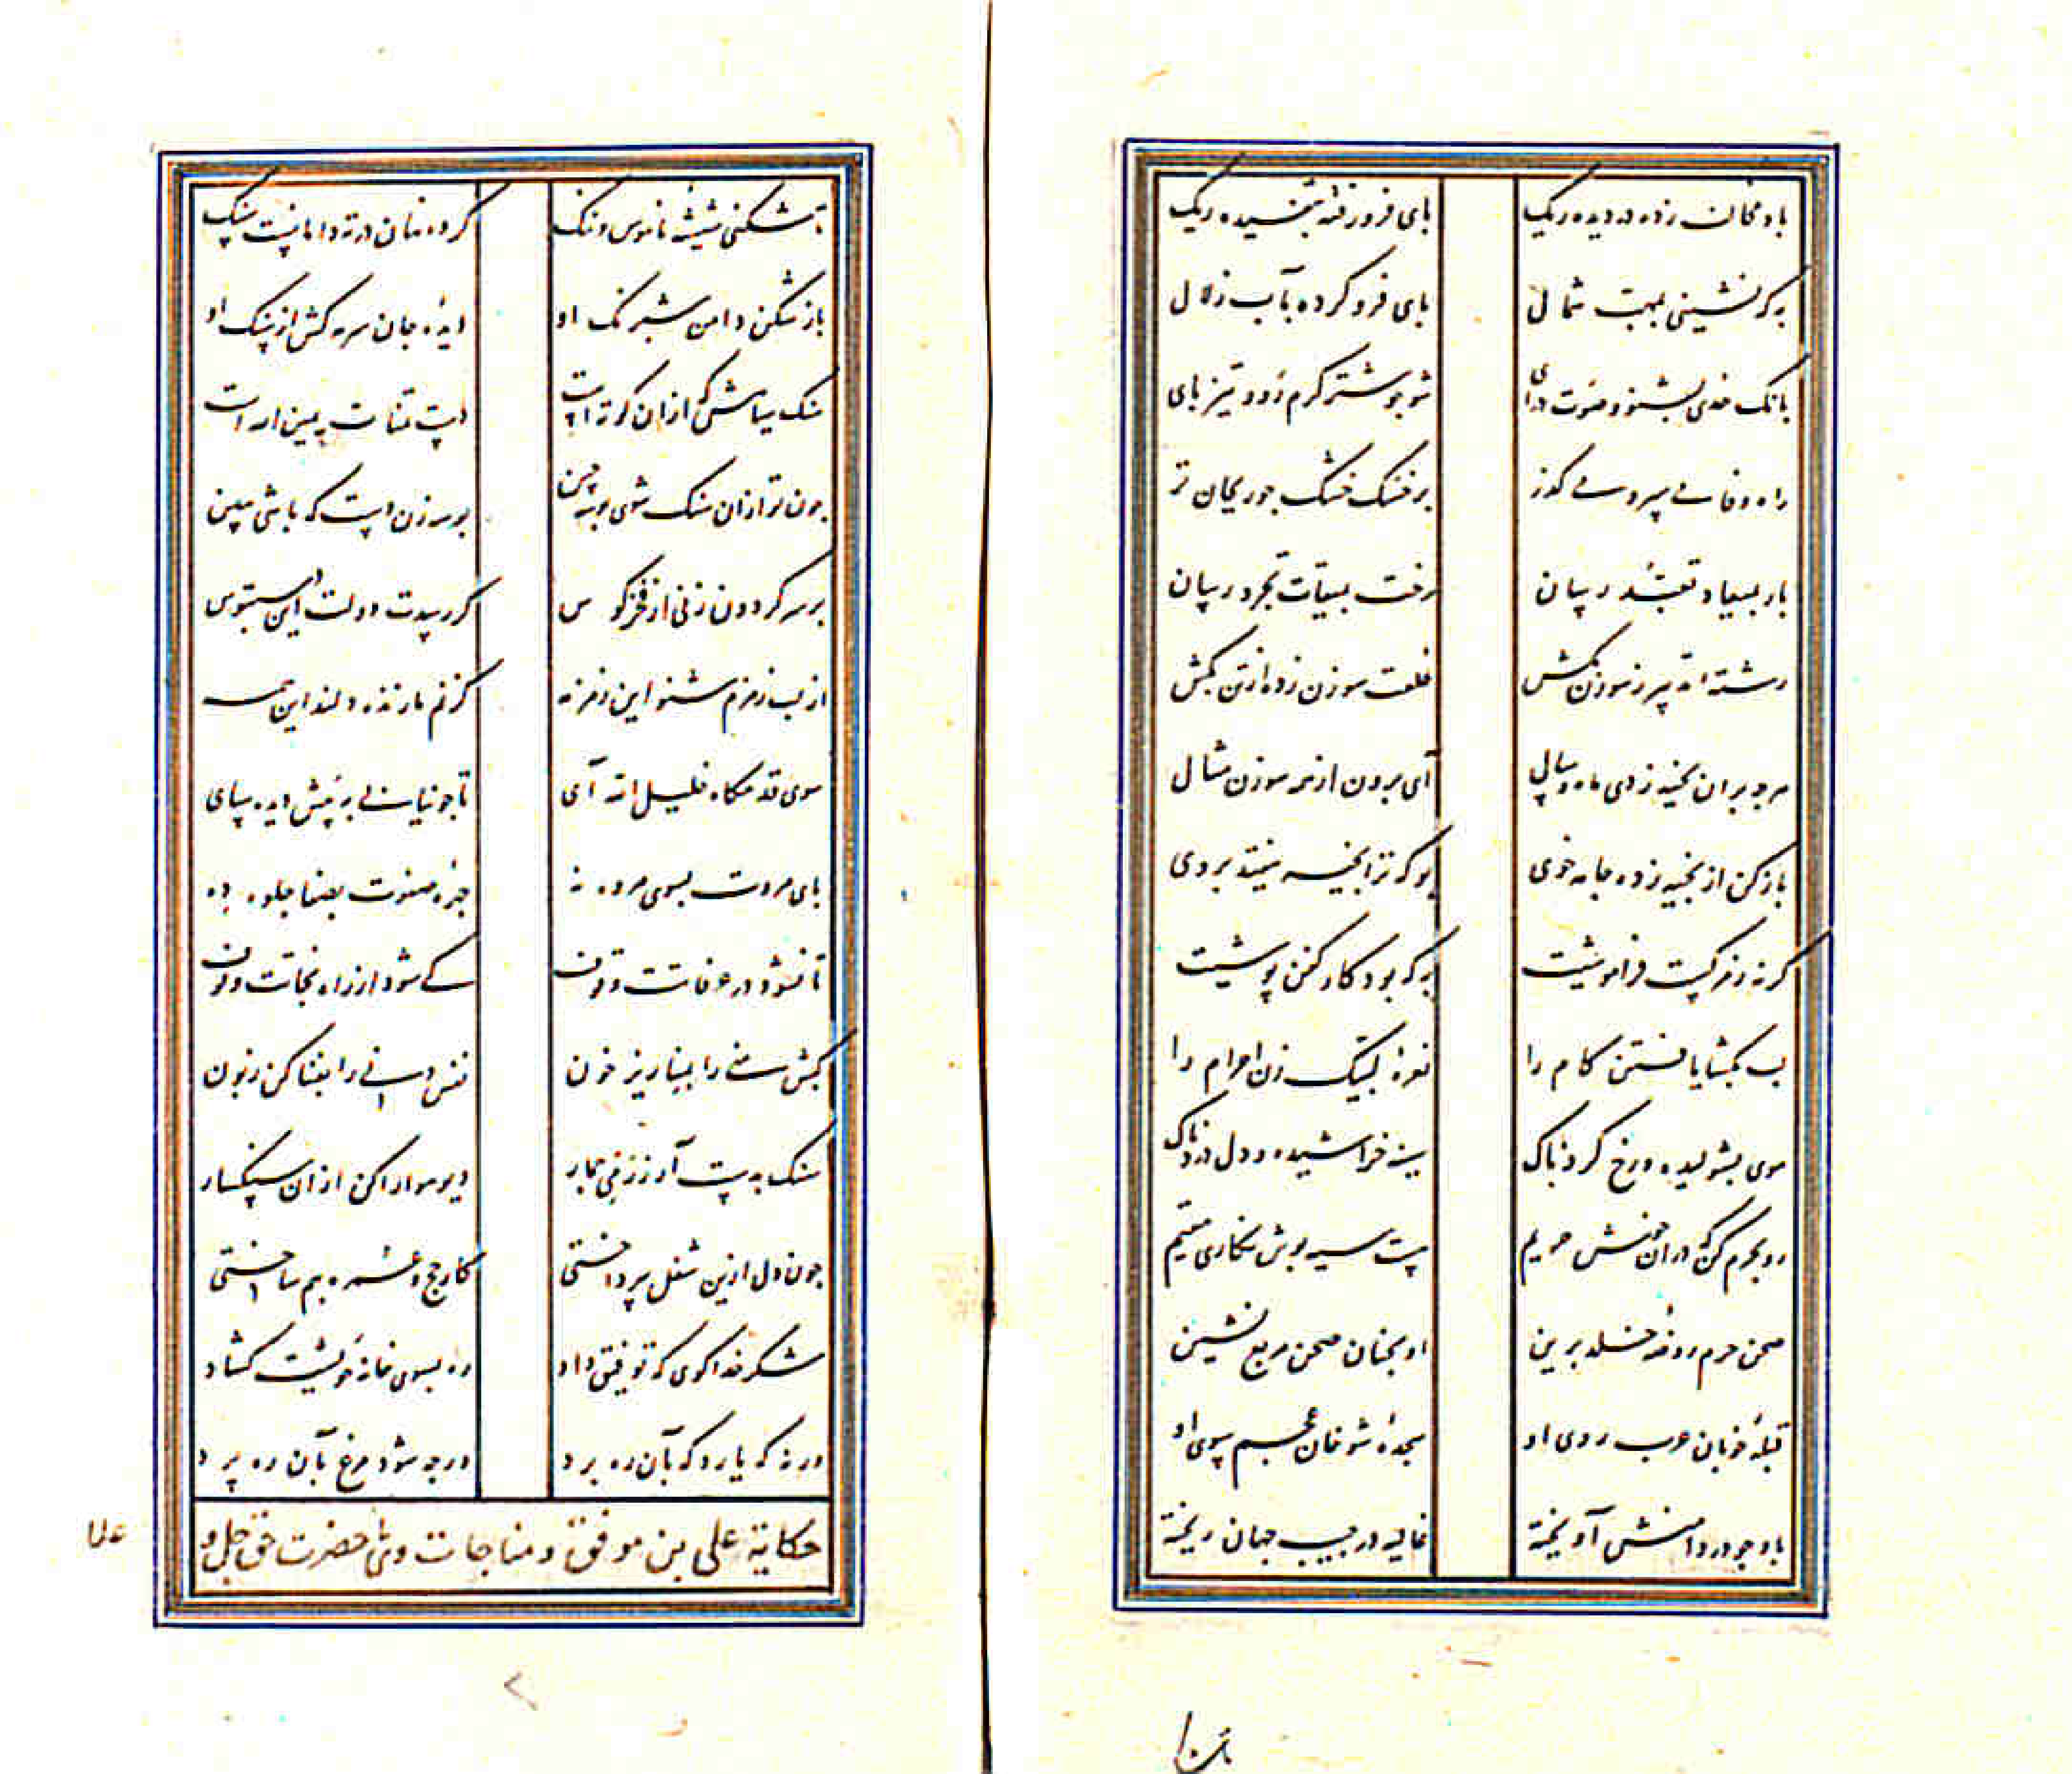 باد مخالف زده در دیده ریک پای فرو رفته بتفسیده ریک
به که نشینی بمهب شمال پای فرو کرده بآب زلال
بانک حدی بشنو و صوت درای شو چو شتر کرم رو و تیز پای
راه وفا بی سپر و بی کذر بر خسک خشک چو ریحان تر
بار بمیعاد تعبد رسان رخت بمیقات تجرد رسان
رشته تدبیر ز سوزن بکش خلعت سوزن زده از تن بکش
هر چه بران بخیه زدی ماه و سال آی برون از همه سوزن مثال
باز کن از بخیه زده جامه خوی بو که ترا بخیه نیفتد بروی
کر نه ز مرکست فراموشیت به که بود کار کفن پوشیت
لب بکشا یافتن کام را نعرهٔ لبیک زن احرام را
موی بشولیده و رخ کردناک سینه خراشیده و دل دردناک
رو بحرم کن که دران خوش حریم هست سیه پوش نکاری مقیم
صحن حرم روضهٔ خلد برین او بچنان صحن مربع نشین
قبلهٔ خوبان عرب روی او سجدهٔ شوخان عجم سوی او
باد چو در دامنش آویخته غالیه در جیب جهان ریخته
تا شکنی شیشهٔ ناموس و ننک کرده نهان در ته دامانت سنک
باز شکن دامن شبرنک او دیدهٔ جان سرمه کش از سنک او
سنک سیاهش که ازان کوته است دست تمنات یمین الله است
چون تو ازان سنک شوی بوسه چین بوسه زن دست که باشی ببین
بر سر کردون زنی از فخر کوس کر رسدت دولت این دستبوس
از لب زمزم شنو این زمزمه کز نم ما زنده دلند این همه
سوی قدمکاه خلیل الله آی تا چو نیابی پیش دیده سای
پای مروت بسوی مروه نه چهرهٔ صفوت بصفا جلوه ده
تا نشود در عرفاتت وقوف کی شود از راه نجاتت وقوف
کبش منی را بمنا ریز خون نفس دنی را بفنا کن زبون
سنک بدست آر ز رمی جمار دیو هوا را کن ازان سنکسار
چون دل ازین شغل بپرداختی کار حج و عمره بهم ساختی
شکر خدا کوی که توفیق داد ره بسوی خانهٔ خویشت کشاد
ورنه که یارد که بآن ره برد ور چه شود مرغ بآن ره پرد
حکایة علی بن موفق و مناجات وی با حضرت حق جل و
علا